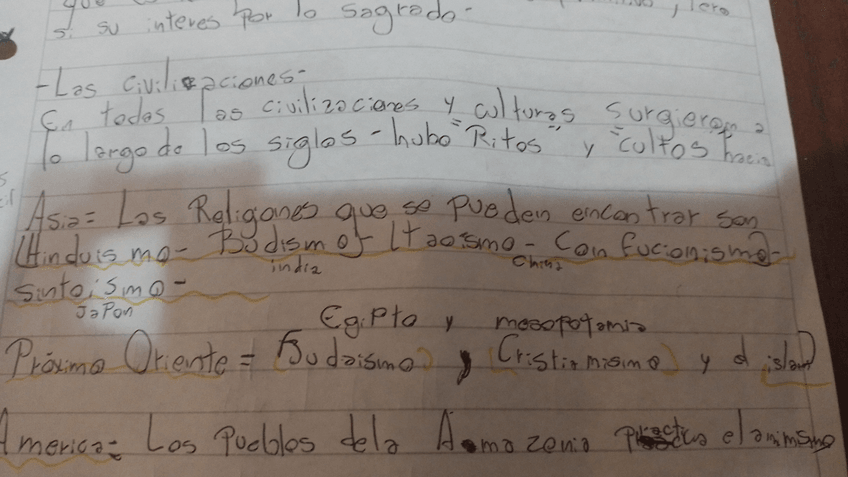 si su interes por lo sagrado-
-Las civilizaciones-
En todas las civilizaciones y culturas surgieron a
lo largo de los siglos - hubo "Ritos" y "cultos hacia
Asia= Las Religiones que se pueden encontrar son
(Hinduismo- Budismo- (Taoismo- Confucionismo)-
india China
sintoismo-
Japon
Egipto y mesopotamia
Próximo Oriente = (Budaismo) y (Cristianisimo) y el islam)
America= Los Pueblos dela Amazonia practica el animismo